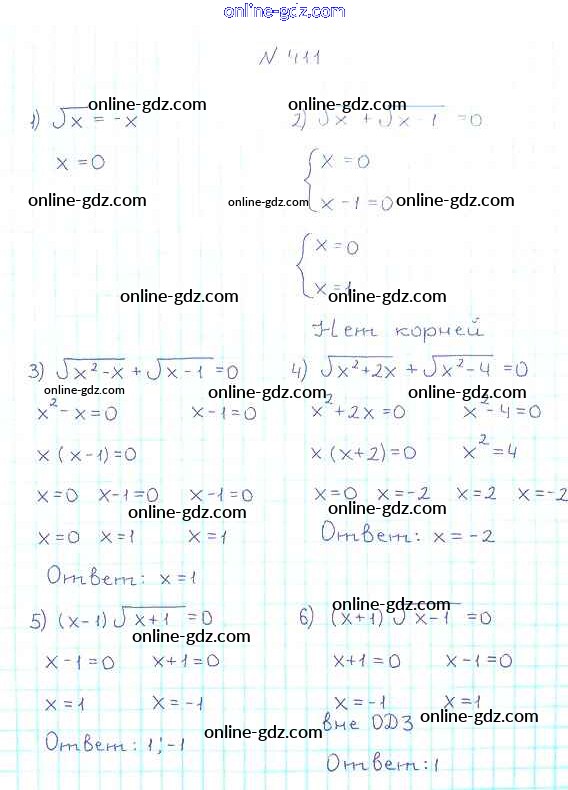 online-gdz.com
N 411
online-gdz.com online-gdz.com
1) √x = -x 2) √x + √x-1 = 0
x = 0 x = 0
online-gdz.com online-gdz.com online-gdz.com
x - 1 = 0
x = 0
online-gdz.com x = 1 online-gdz.com
Нет корней
3) √x²-x + √x-1 = 0 4) √x²+2x + √x²-4 = 0
online-gdz.com online-gdz.com online-gdz.com
x²-x=0 x-1=0 x²+2x=0 x²-4=0
x(x-1)=0 x(x+2)=0 x²=4
x=0 x-1=0 x-1=0 x=0 x=-2 x=2 x=-2
online-gdz.com online-gdz.com
x=0 x=1 x=1 Ответ: x=-2
Ответ: x=1
online-gdz.com
5) (x-1)√x+1 = 0 6) (x+1)√x-1 = 0
online-gdz.com online-gdz.com
x-1=0 x+1=0 x+1=0 x-1=0
x=1 x=-1 x=-1 x=1
вне ОДЗ online-gdz.com
online-gdz.com
Ответ: 1; -1 Ответ: 1